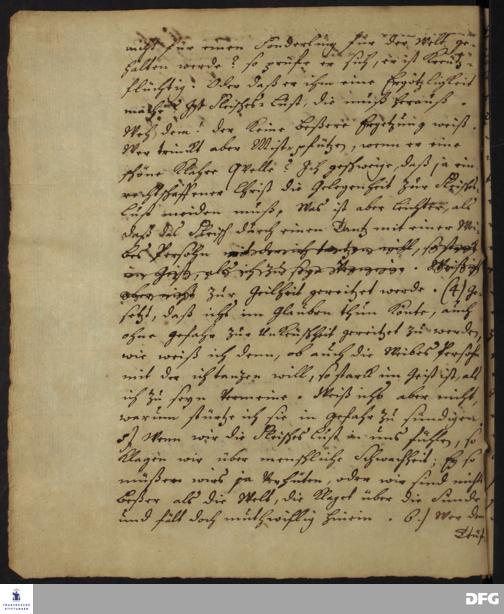 nicht für einen Sonderling für der Welt ge-
halten werde? so prüfe er sich, er ist Creutz-
flüchtig. Oder daß er ihm eine Ergötzlichkeit
mache? Ists Fleisches Lust, die muß heraus.
Weh dem! der keine beßere Ergetzung weiß.
Wer trinckt aber Mist-pfützen, wenn er eine
schöne klahre Qvelle? Ich geschweige, daß ja ein
rechtschaffener Christ die Gelegenheit zur Fleisches
Lust meiden muß, Was ist aber leichter, als
daß das Fleisch durch einen Tantz mit einer Wei-
bes Persohn
zur Geilheit gereitzet werde. (4) Ge-
setzt, daß ichs im Glauben thun könte, auch
ohne Gefahr zur Unkeuschheit gereitzet zu werden,
wie weiß ich denn, ob auch die Weibes Persohn
mit der ich tanzen will, so starck im Geist ist, als
ich zu seyn vermeine. Weiß ichs aber nicht,
warum stürtze ich sie in Gefahr zu sündigen.
5) Wenn wir die Fleisches Lust in uns fühlen, so
klagen wir über menschliche Schwachheit; Ey so
müßen wirs ja verhüten, oder wir sind nicht
beßer als die Welt, die klaget über die Sünde
und fält doch muthwillig hinein. 6.) Wer den
DFG